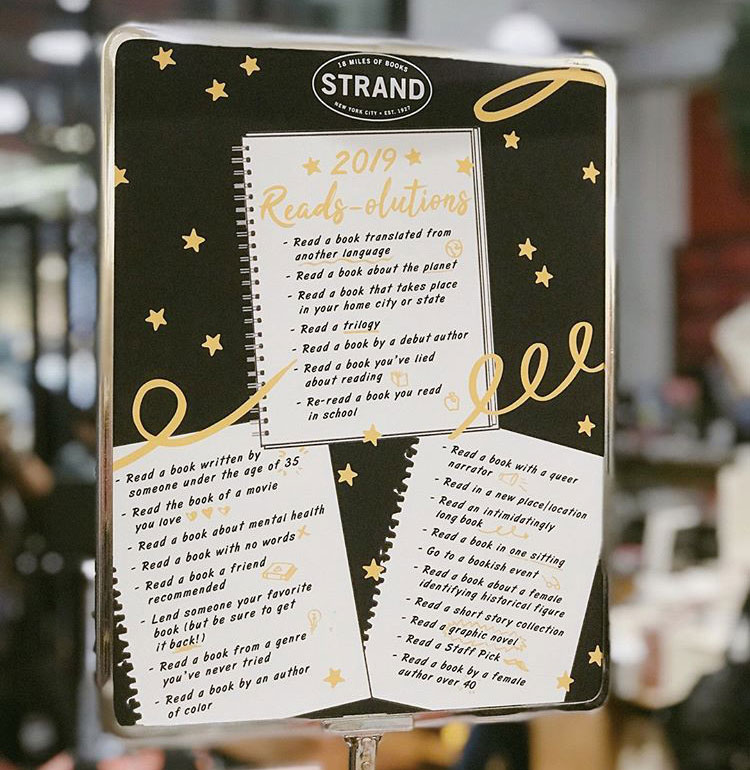 18 MILES OF BOOKS
STRAND
NEW YORK CITY • EST. 1927
2019
Reads-olutions
- Read a book translated from
another language
- Read a book about the planet
- Read a book that takes place
in your home city or state
- Read a trilogy
- Read a book by a debut author
- Read a book you've lied
about reading
- Re-read a book you read
in school
- Read a book written by
someone under the age of 35
- Read the book of a movie
you love
- Read a book about mental health
- Read a book with no words
- Read a book a friend
recommended
- Lend someone your favorite
book (but be sure to get
it back!)
- Read a book from a genre
you've never tried
- Read a book by an author
of color
- Read a book with a queer
narrator
- Read in a new place/location
- Read an intimidatingly
long book
- Read a book in one sitting
- Go to a bookish event
- Read a book about a female
identifying historical figure
- Read a short story collection
- Read a graphic novel
- Read a Staff Pick
- Read a book by a female
author over 40